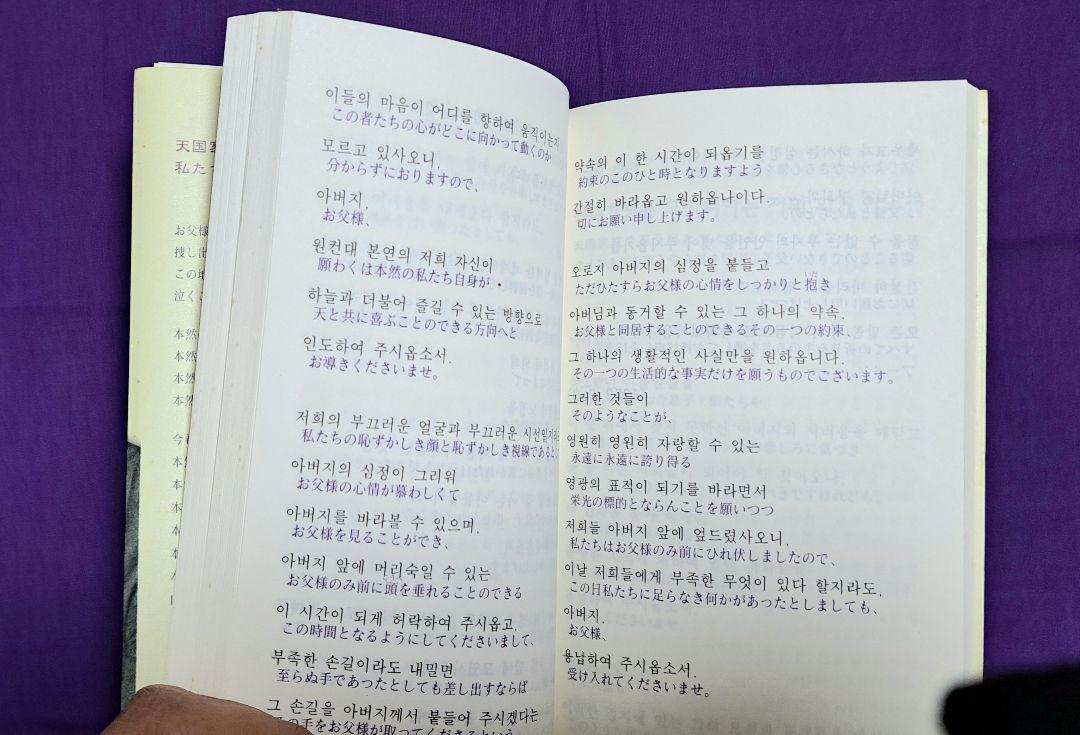 天国
私た
お父様
捜し出
この地
泣くこ
本然
本然
本然
本然
今
本
本
本
이들의 마음이 어디를 향하여 움직이는지
この者たちの心がどこに向かつて動くのか
모르고 있사오니,
分からずにおりますので、
아버지,
お父様、
원컨대 본연의 저희 자신이
願わくは本然の私たち自身が
하늘과 더불어 즐길 수 있는 방향으로
天と共に喜ぶことのできる方向へと
인도하여 주시옵소서.
お導きくださいませ。
저희의 부끄러운 얼굴과 부끄러운 시선일지
私たちの恥ずかしき顔と恥ずかしき視線であると
아버지의 심정이 그리워
お父様の心情が慕わしくて
아버지를 바라볼 수 있으며,
お父様を見ることができ、
아버지 앞에 머리숙일 수 있는
お父様のみ前に頭を垂れることのできる
이 시간이 되게 허락하여 주시옵고,
この時間となるようにしてくださいまして、
부족한 손길이라도 내밀면
至らぬ手であったとしても差し出すならば
그 손길을 아버지께서 붙들어 주시겠다는
の手をお父様が取ってくださるという
약속의 이 한 시간이 되옵기를
約束のこのひと時となりますよう
간절히 바라옵고 원하옵나이다.
切にお願い申し上げます。
오로지 아버지의 심정을 붙들고
ただひたすらお父様の心情をしっかりと抱き
아버님과 동거할 수 있는 그 하나의 약속,
お父様と同居することのできるその一つの約束、
그 하나의 생활적인 사실만을 원하옵니다.
その一つの生活的な事実だけを願うものでございます。
그러한 것들이
そのようなことが、
영원히 영원히 자랑할 수 있는
永遠に永遠に誇り得る
영광의 표적이 되기를 바라면서
栄光の標的とならんことを願いつつ
저희들 아버지 앞에 엎드렸사오니,
私たちはお父様のみ前にひれ伏しましたので、
이날 저희들에게 부족한 무엇이 있다 할지라도,
この日私たちに足らなき何かがあったとしましても、
아버지,
お父様、
용납하여 주시옵소서.
受け入れてくださいませ。